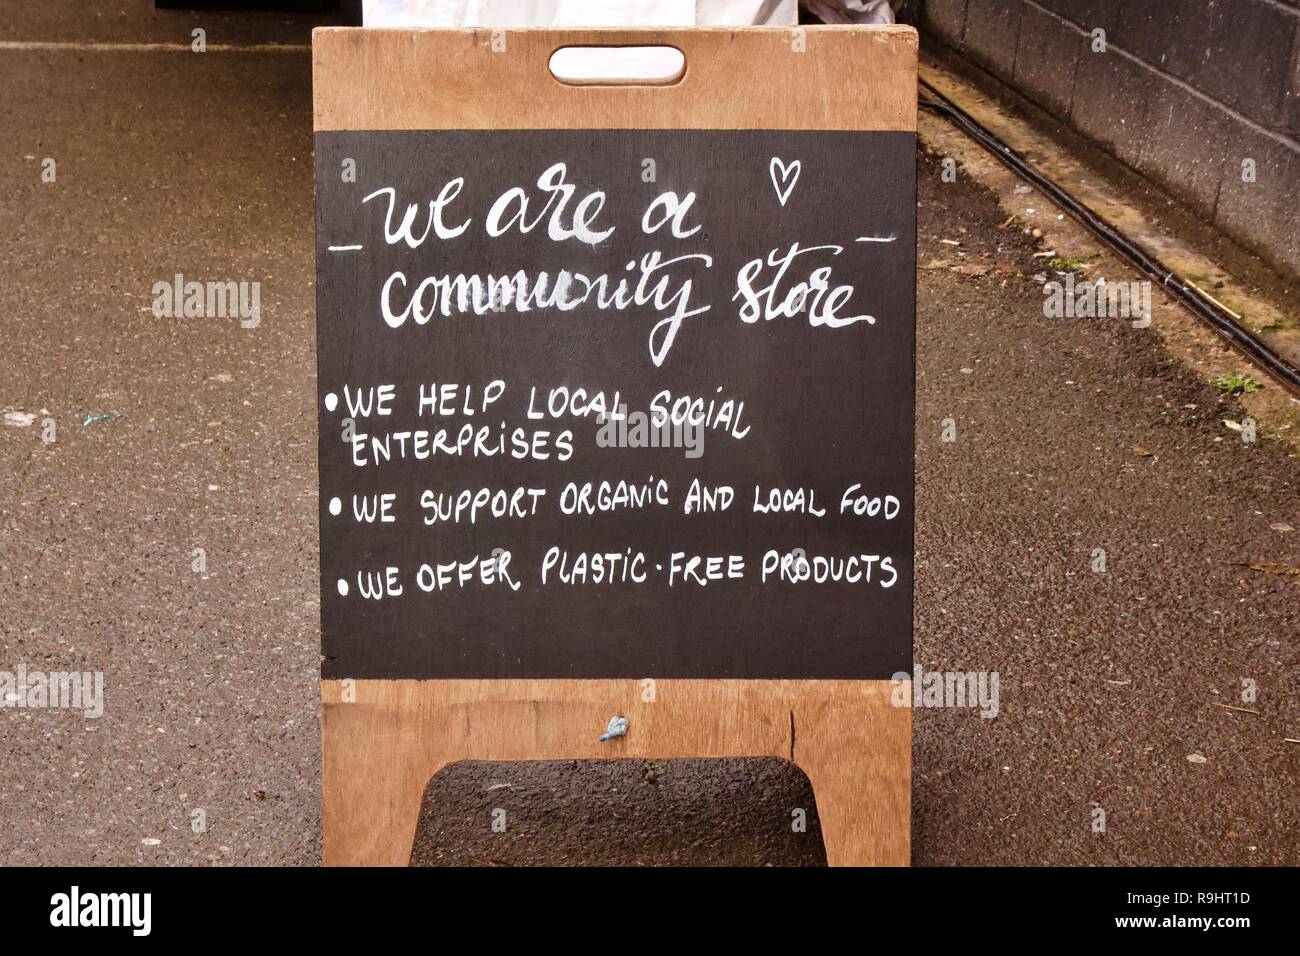 we are a
community store
• WE HELP LOCAL SOCIAL
ENTERPRISES
• WE SUPPORT ORGANIC AND LOCAL FOOD
• WE OFFER PLASTIC-FREE PRODUCTS
alamy
Image ID: R9HT1D
www.alamy.com